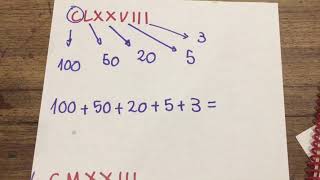 CLXXVIII
100 50 20 5 3
100+50+20+5+3=
CMXXIII